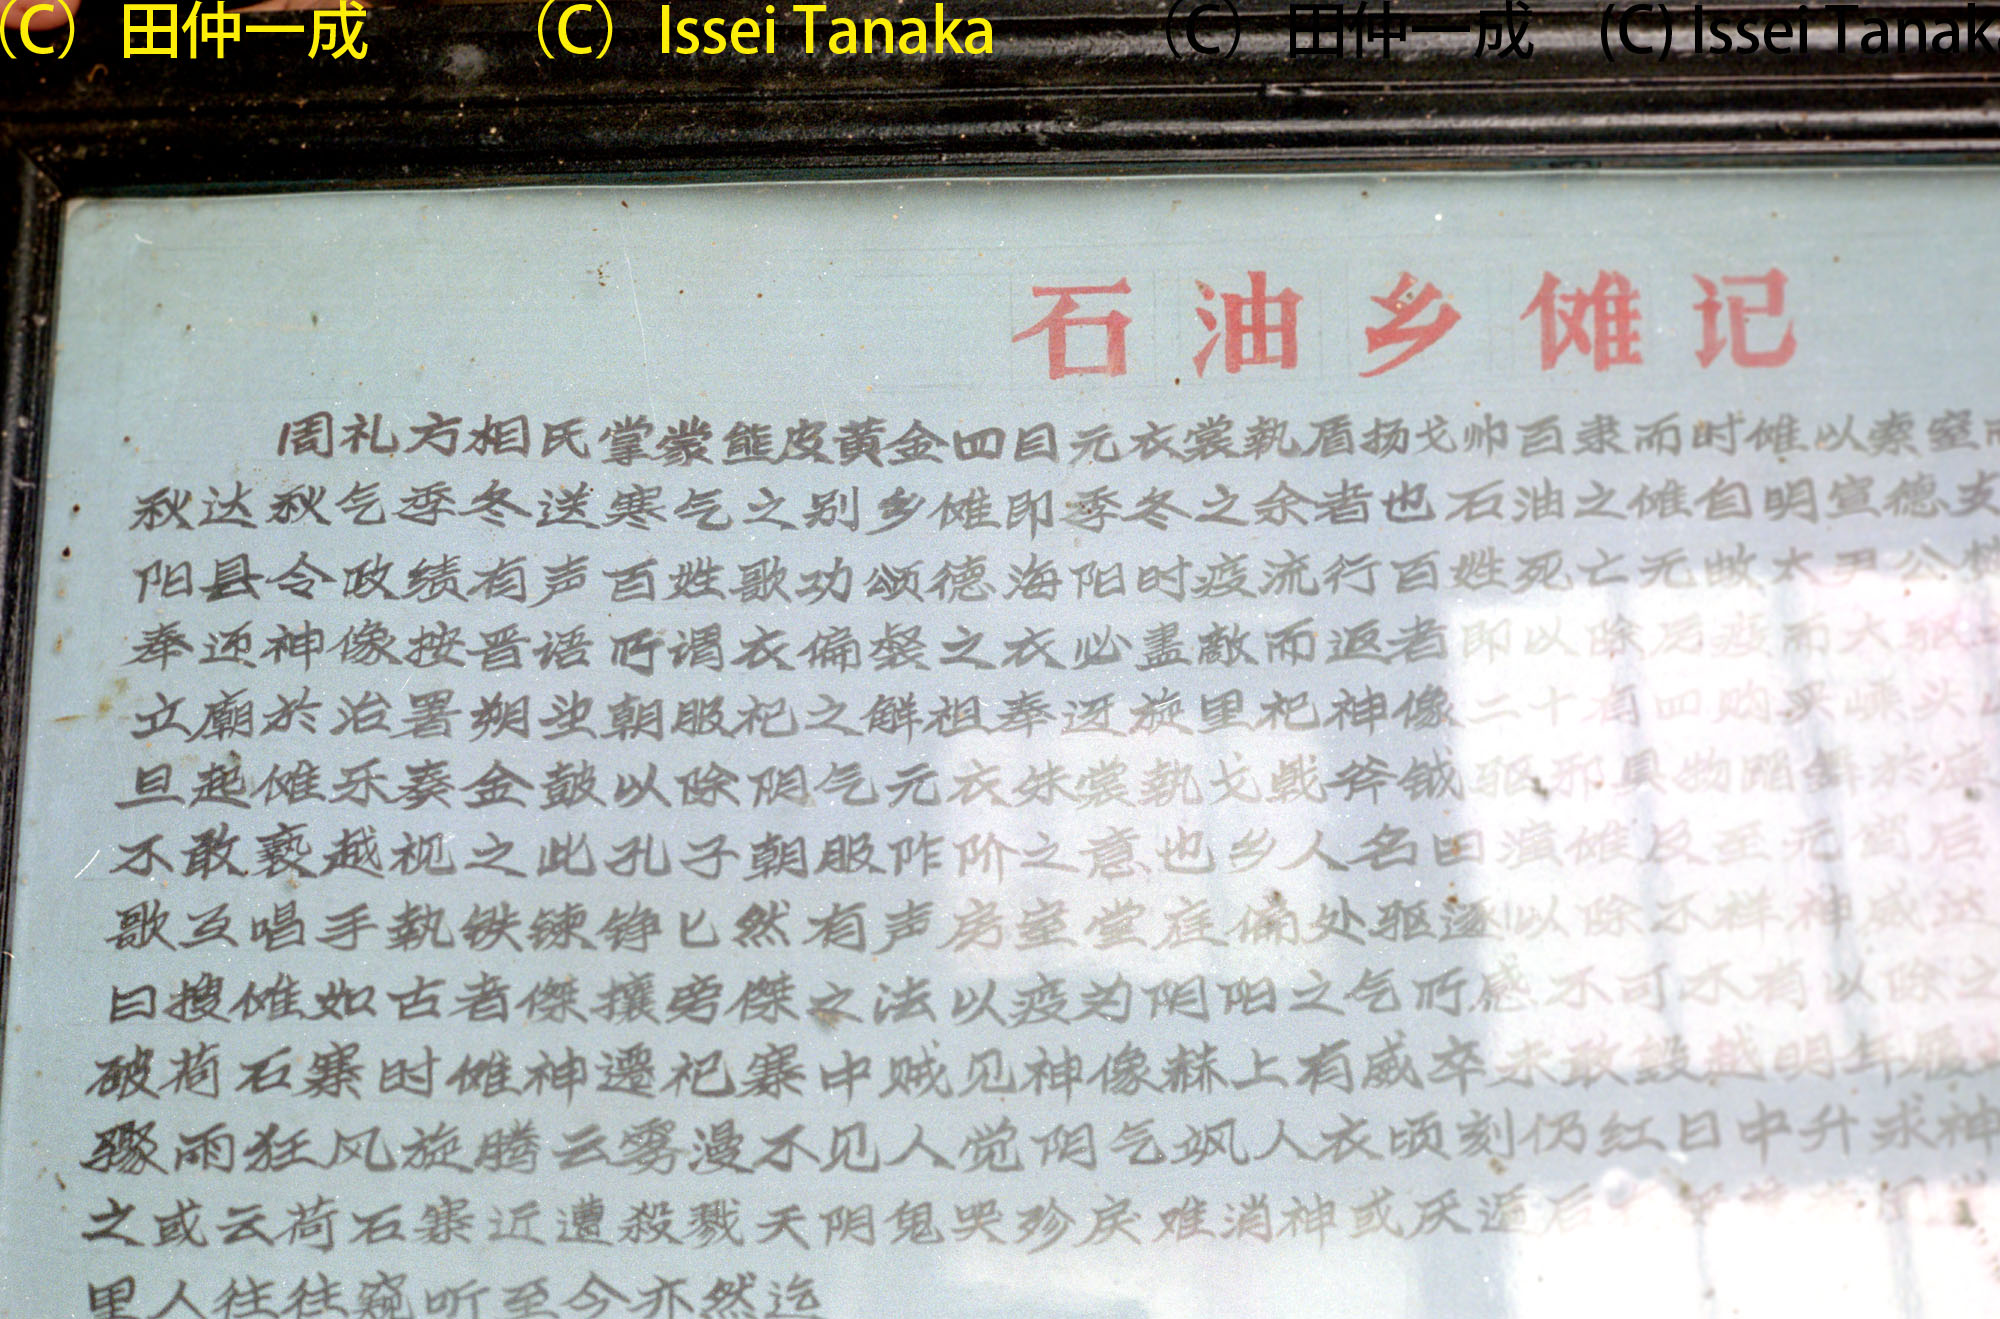 (C) 田仲一成 (C) Issei Tanaka (C) 田仲一成 (C) Issei Tanak
石油乡傩记
周礼方相氏掌蒙熊皮黄金四目元衣裳執盾扬戈帅百隶而时傩以索室
秋达秋气季冬送寒气之别乡傩即季冬之余者也石油之傩自明宣德
阳县令政绩有声百姓歌功颂德海阳时疫流行百姓死亡无故太尹公
奉还神像按晋语所谓衣偏裻之衣必盡敵而返者即以除厉疫而大驱
立廟於治署朔望朝服祀之解祖奉迓旋里祀神像二十有四购买嵊头
旦起傩乐奏金鼓以除阴气元衣朱裳執戈戟斧钺驱邪具物蹈舞於庭
不敢亵越视之此孔子朝服阼阶之意也乡人名曰演傩及至元宵后
歌互唱手執铁鍊铮匕然有声房室堂庭偏处驱逐以除不祥神威
曰搜傩如古者傑攘旁傑之法以疫为阴阳之气所感不可不有以除之
破荷石寨时傩神遷祀寨中贼见神像赫上有威卒未敢設越明年
骤雨狂风旋腾云雾漫不见人觉阴气飒人衣顷刻仍红日中升求神
之或云荷石寨近遭殺戮天阴鬼哭殄戾难消神或厌遁后
里人往往窥听至今亦然迄